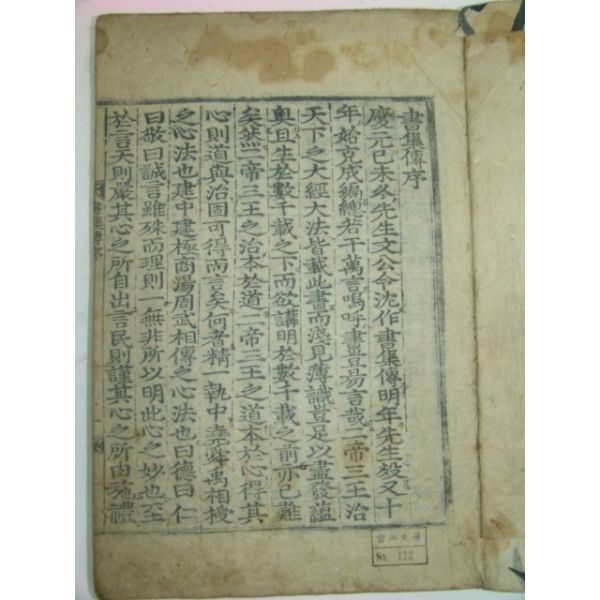 書集傳序
慶元己未冬先生文公令沈作書集傳明年先生歿又十
年始克成編總若干萬言嗚呼書豈易言哉二帝三王治
天下之大經大法皆載此書而淺見薄識豈足以盡發蘊
奧且生於數千載之下而欲講明於數千載之前亦已難
矣然二帝三王之治本於道二帝三王之道本於心得其
心則道與治固可得而言矣何者精一執中堯舜禹相授
之心法也建中建極商湯周武相傳之心法也曰德曰仁
曰敬曰誠言雖殊而理則一無非所以明此心之妙也至
於言天則嚴其心之所自出言民則謹其心之所由施禮
書集傳序
No. 112